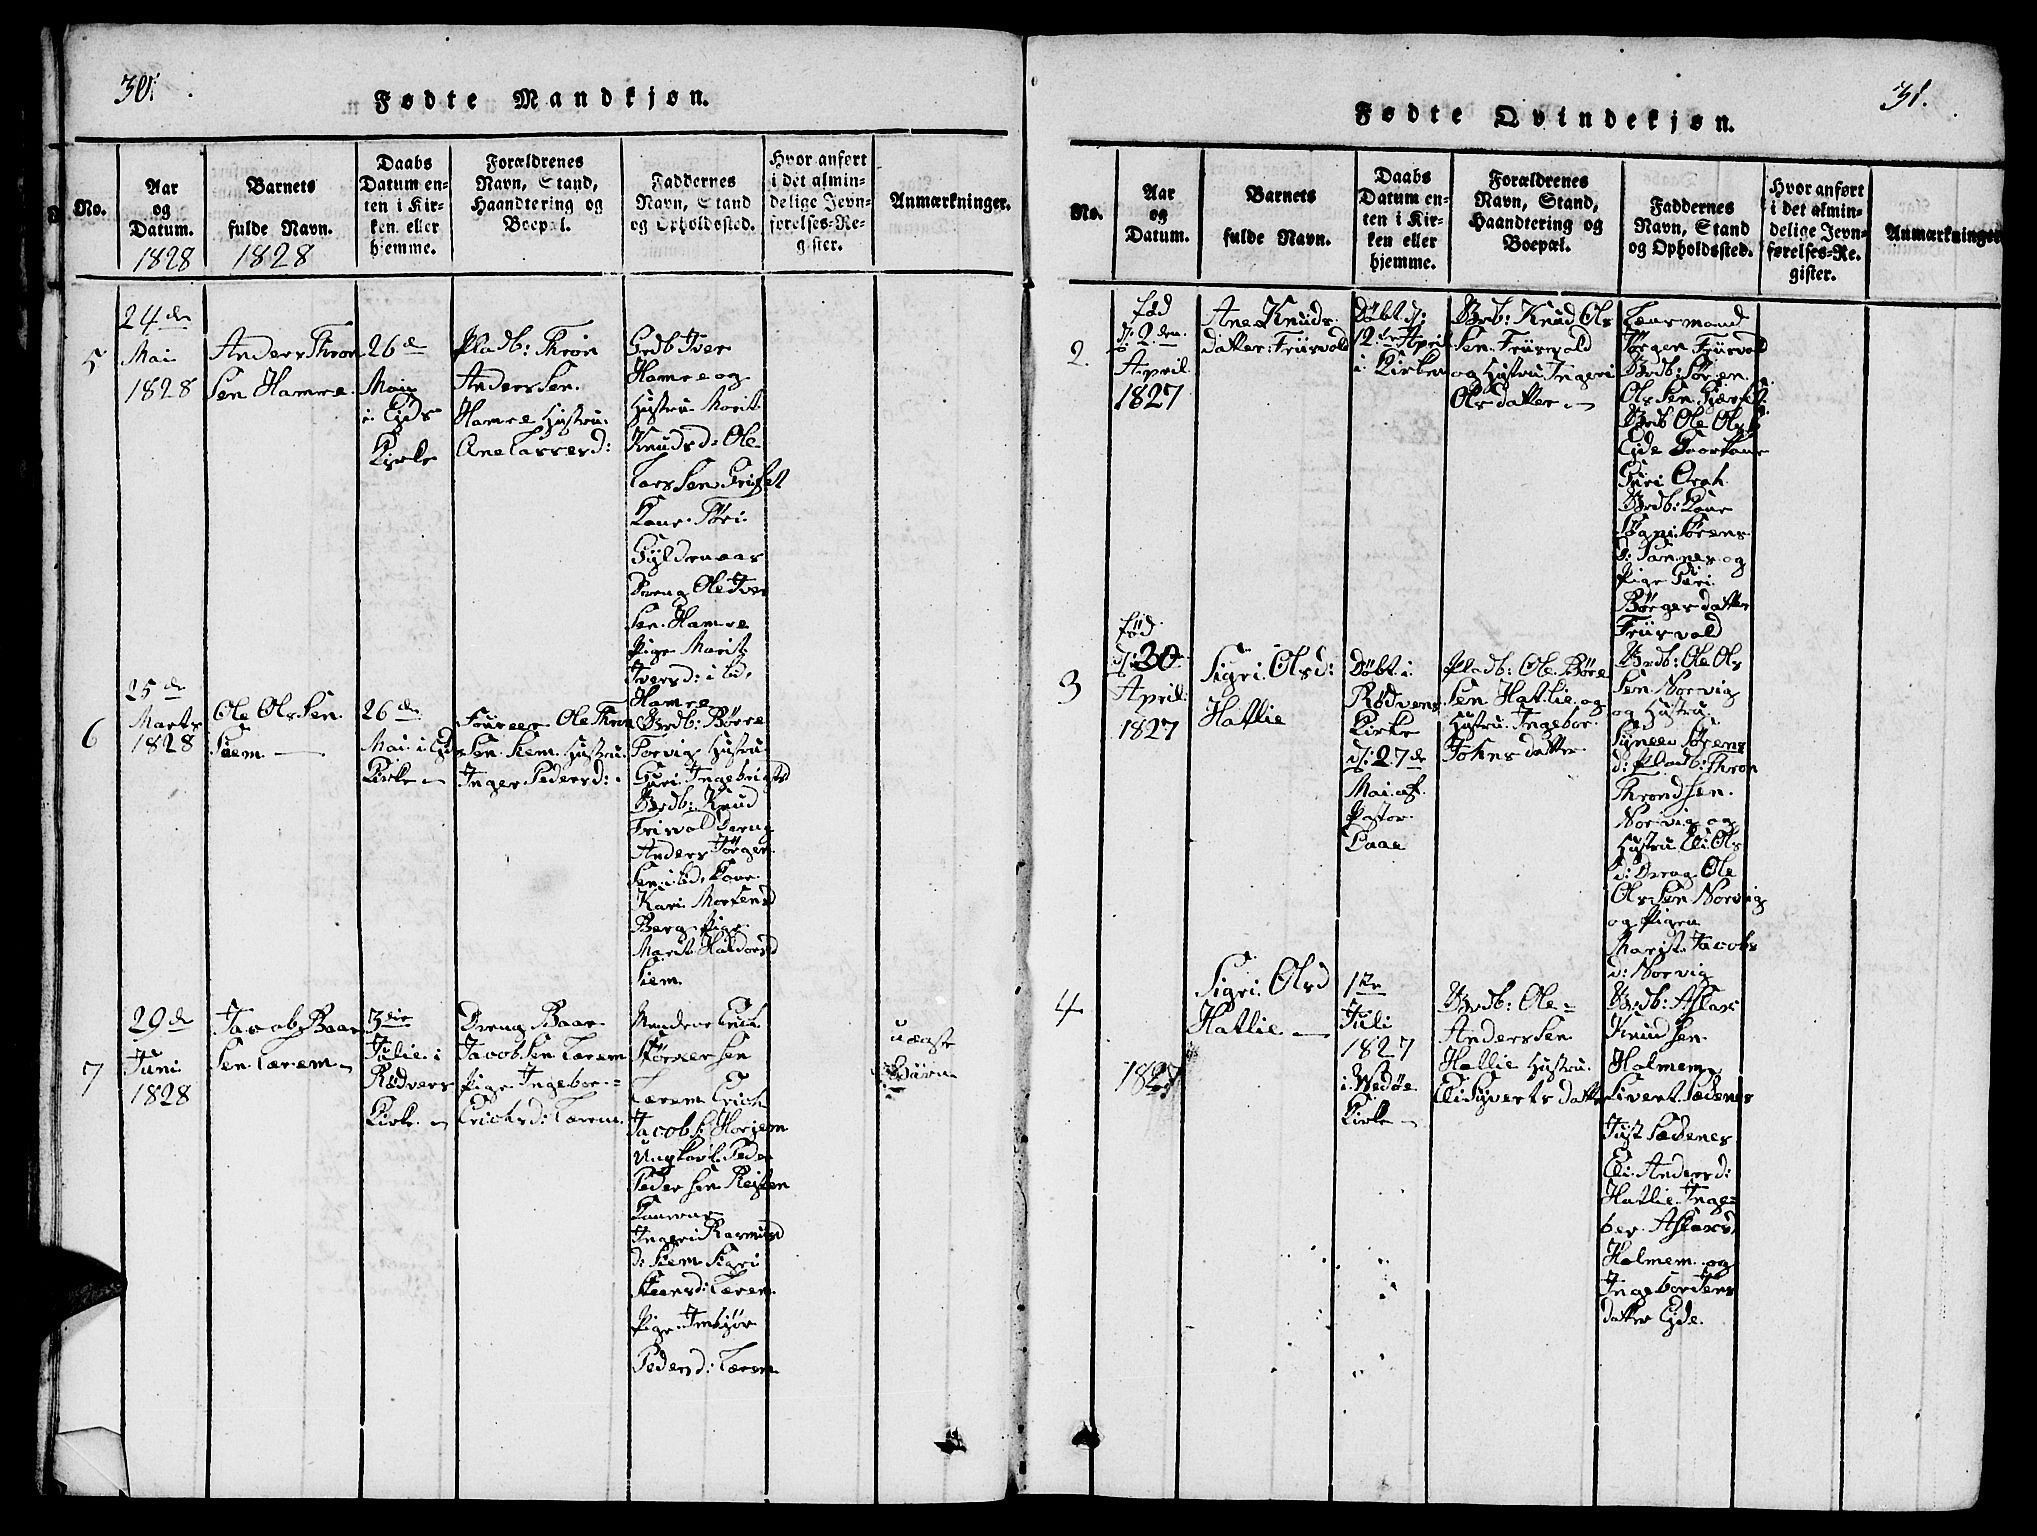 30.
Fødte Mandkjøn.
No.
Aar
og
Datum.
1828
Barnets
fulde Navn.
1828
Daabs
Datum en-
ten i Kir-
ken eller
hjemme.
Forældrenes
Navn, Stand,
Haandtering og
Boepæl.
Faddernes
Navn, Stand
og Opholdssted.
Hvor anført
i det almin-
delige Jevn-
førelses-Re-
gister.
Anmærkninger.
5
24de
Mai
1828
Anders Thron
Sen Hamre.
26de
Mai
i Eids
Kirke
Pladb: Thron
Anders Sen.
Hamre Hustru.
Ane Lassesd:
Grdb Iver
Hamre og
Hustru Marit
Knudsd: Ole
Lars Sen
Kone Tøri
Gyldenaas
Dreng Ole Iver
Sen. Hamre
Pige Marit
Iversd: ibd,
Hamre
6
25de
Marts
1828
Ole Ols Sen.
Siem.
26de
Mai i Eids
Kirke
Ole Thron
Sen. Siem. Hustru.
Inger Pedersd:
Grdb: Børre
Torvig Hustru
Guri Ingebrigtsd
Grdb: Knud
Frisvold Dreng
Anders Jørgen
Sen. ibd, Kone
Kari Mortensd
Berg. Pige
Marit Haldorsd
Siem.
7
29de
Juni
1828
Jacob Baar
Sen Lærem
3die
Julie i
Rødvens
Kirke.
Dreng Baar
Jacob Sen Lærem
Pige Ingebor
Erichsd: Lærem.
Størker Sen
Lærem Erich
Jacobs: Horjem
Ungkarl Peder
Peder Sen Reisten
Konerne
Ingeri Rasmusd
Siem Sigri
Steensd: Lærem.
Pige Imbjør
Pedersd: Lærem
uægte
Børn
31.
Fødte Qvindekjøn.
No.
Aar
og
Datum.
Barnets
fulde Navn.
Daabs
Datum en-
ten i Kir-
ken eller
hjemme.
Forældrenes
Navn, Stand,
Haandtering og
Boepæl.
Faddernes
Navn, Stand
og Opholdssted.
Hvor anført
i det almin-
delige Jevn-
førelses-Re-
gister.
Anmærkninger
2
fød
d: 2den
April
1827
Ane Knuds
datter: Friisvold
Døbt d:
12de April
i Kirken
Grdb: Knud Ols
Sen. Friisvold
og Hustru Ingeri
Ols datter
Lensmand
Jørgen Friisvold
Grdb: Søren
Ols Sen.
Grdb Ole Ols
Eide Gaarkone
Guri Orah
Grdb: Kone
Søgni Sørens
d: Tannes og
Pige Guri
Børges datter
Friisvold
3
fød
d: 30
April
1827
Sigri Olsd:
Hatlie
Døbt i
Rødvens
Kirke
d: 27de
Mai af
Pastor
Pladb: Ole Børe
Sen Hatlie og
Hustru Ingebor
Johns datter
Grdb: Ole Ols
Sen. Norvig
og Hustru
Synnev Sørens
d: Pladb: Thron
Thrond Sen.
Norvig og
Hustru Eli Ols
d: Dreng Ole
Ols Sen Norvig
og Pigen
Marit Jacobs
d: Norvig
4
1827
Sigri Olsd
Hatlie
1te
Juli
1827
i Wedøe
Kirke
Grdb: Ole
Anders Sen
Hatlie Hustru.
Eli Syverts datter
Grdb: Aslac
Knud Sen
Holmem
Sivert Sødenes
Just Sædenes
Eli Andersd:
Hatlie Inge-
bor Aslacsd
Holmem og
Ingebor Iens
datter Eide.